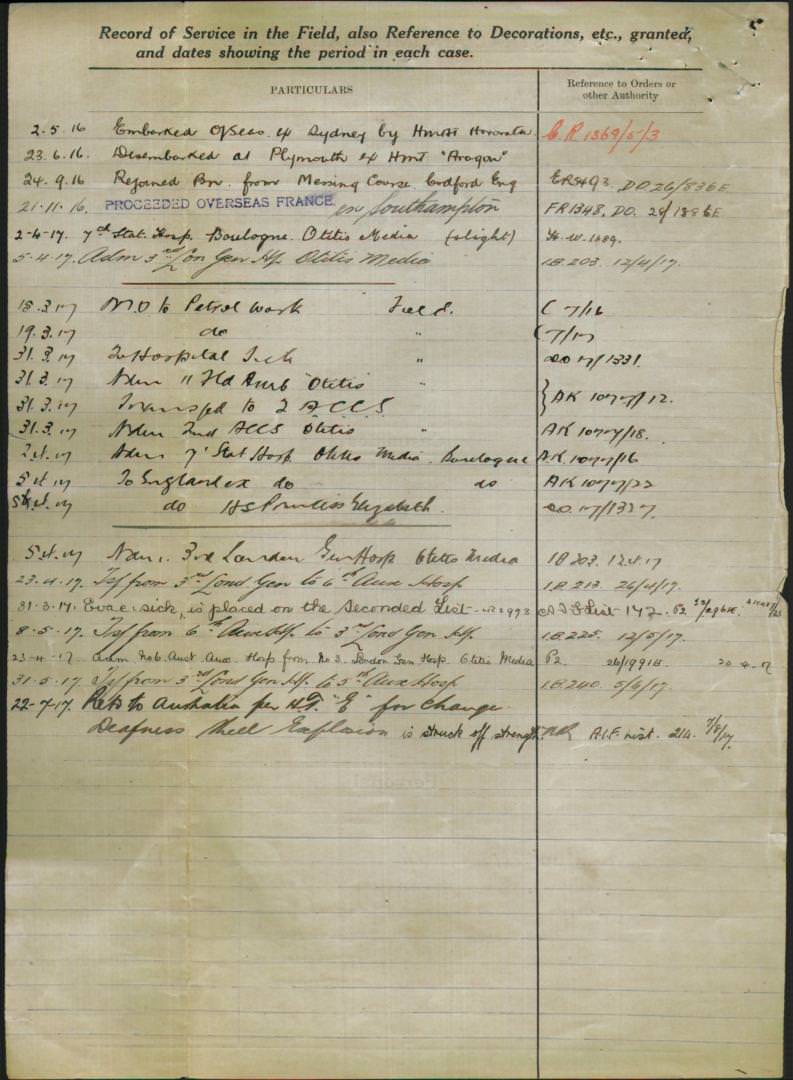 Record of Service in the Field, also Reference to Decorations, etc., granted,
and dates showing the period in each case.
PARTICULARS
Reference to Orders or
other Authority
2.5.16 Embarked O/Seas ex Sydney by HMAT Hororata. C.R 1369/5/3
23.6.16. Disembarked at Plymouth ex Hmt "Aragon"
24.9.16 Rejoined Bn. from Messing Course Codford Eng ER 493. DO 26/836E
21.11.16. PROCEEDED OVERSEAS FRANCE. Southampton FR1348. DO. 29/1886E
2-4-17. 7th Stat. Hosp. Boulogne. Otitis Media (slight)
5.4.17. Adm 3rd Lon Gen Hp. Otitis Media I.B 203. 12/4/17.
18.3.17 to Patrol work Field. C 7/16
19.3.17 do " C 7/17
31.3.17 To Hospital Sick " DO 17/1331
31.3.17 Adm 11 Fld Amb "Otitis" "
31.3.17 Transfd to 2 ACCS } AK 1077/12.
31.3.17 Adm 2nd ACCS Otitis " AK 1077/18.
2.4.17 Adm 7 Stat Hosp Otitis Media. Boulogne AK 1077/16
5.4.17 To England ex do do AK 1077/22
5.4.17 do HS Princess Elizabeth. DO 17/1337
5.4.17 Adm. 3rd London Gen Hosp Otitis Media I.B 203. 12.4.17
23.4.17. Tsf from 3rd Lond Gen to 6th Aux Hosp I.B. 213. 26/4/17.
31.3.17. Evac. sick, is placed on the Seconded List A.I.F List 142. P2
8.5.17. Tsf from 6th Aux Hp. to 3rd Lond Gen Hp. I.B 225. 12/5/17.
23-4-17 Adm No 6. Aust Aux. Hosp from No 3. London Gen Hosp. Otitis Media P2 26/1991E. 20.4.17
31.5.17 Tsf from 3rd Lond Gen Hp. to 5th Aux Hosp I.B 240. 5/6/17.
22-7-17. Rets to Australia per H.T. "E" for change.
Deafness Shell Explosion is struck off strength. A.I.F. List. 214. 7/8/17.